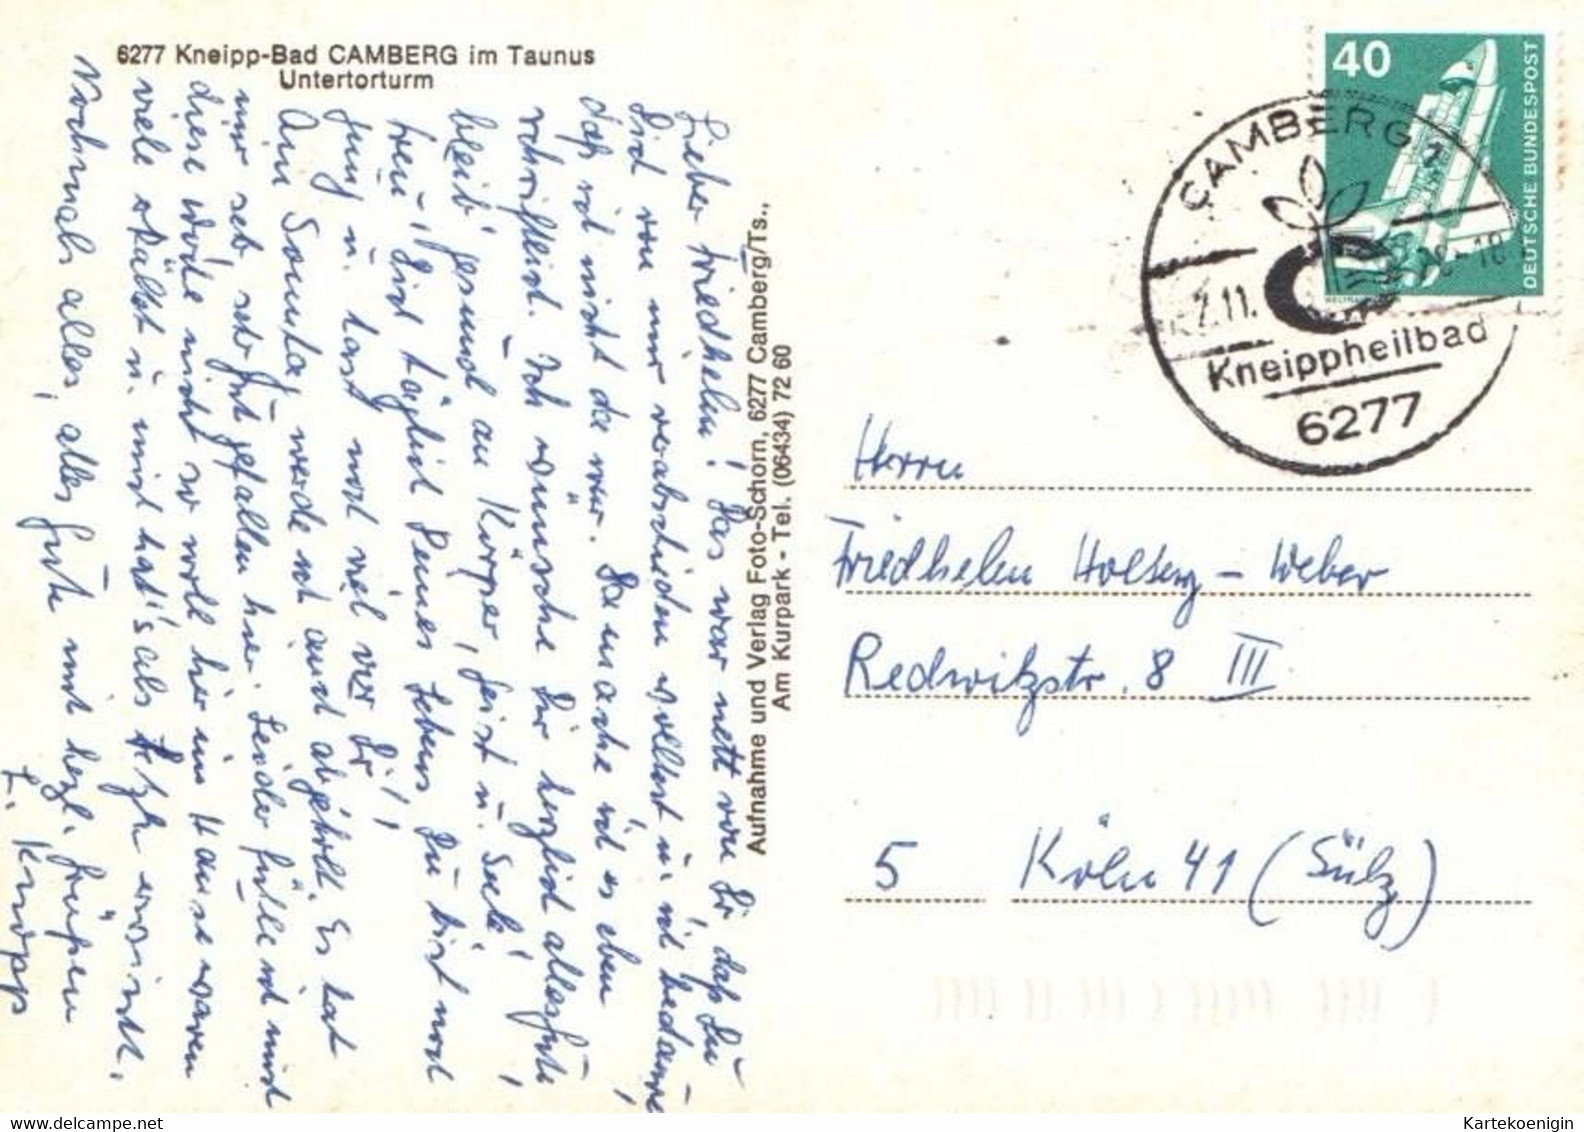 6277 Kneipp-Bad CAMBERG im Taunus
Untertorturm
Lieber Friedhelm! Das war nett von Dir, daß Du
Dich von mir verabschieden wolltest u. ich bedaure,
daß ich nicht da war. So mache ich es eben
schriftlich. Ich wünsche Dir herzlich alles Gute,
bleib' gesund an Körper, Geist u. Seele!
treu! Dich täglich Deines Lebens, Du bist noch
jung u. hast noch viel vor Dir!
Am Sonntag werde ich auch abgeholt. Es hat
mir sehr, sehr gut gefallen hier. Leider fühle ich mich
diese Woche nicht so wohl hier im Hause waren
viele erkältet u. mich hat's als erwischt.
Nochmals alles, alles Gute mit herzl. Grüßen
F. Knopp
Aufnahme und Verlag Foto-Schorn, 6277 Camberg/Ts.,
Am Kurpark - Tel. (06434) 72 60
40
DEUTSCHE BUNDESPOST
CAMBERG 1
2.11.
-18
Kneippheilbad
6277
Herrn
Friedhelm Holberg-Weber
Redwitzstr. 8 III
5 Köln 41 (Sülz)
delcampe.net
Kartekoenigin